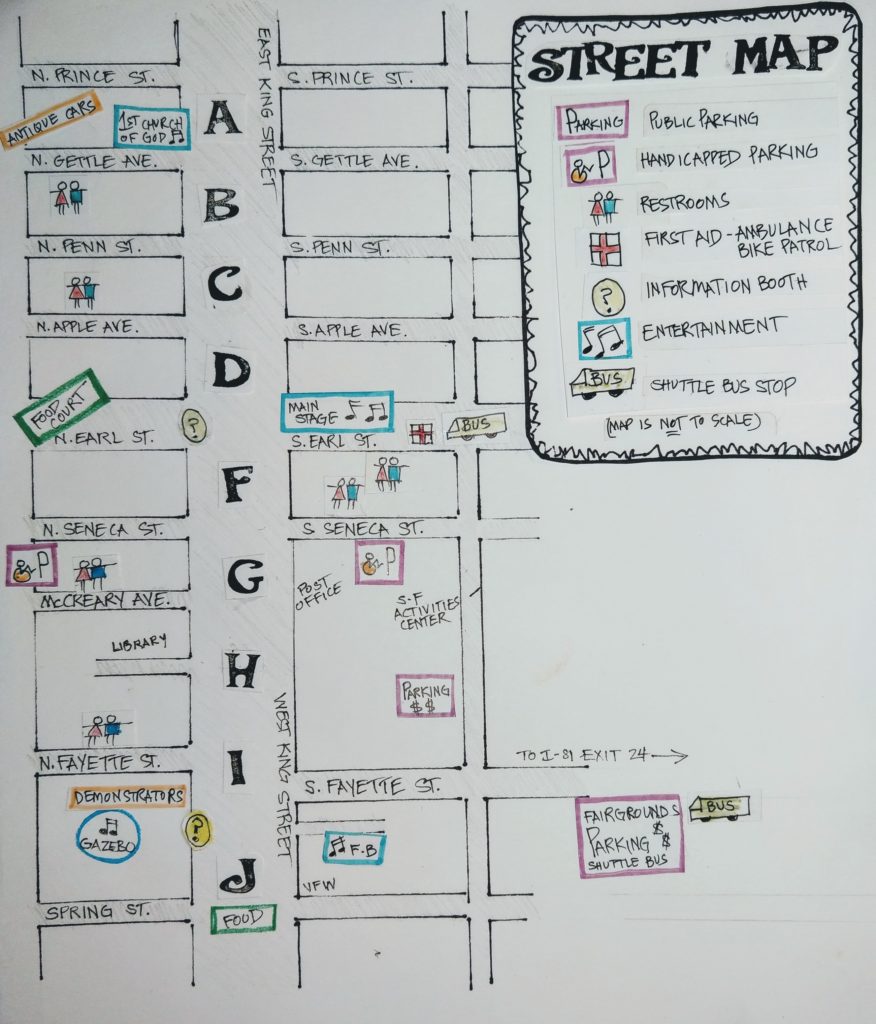 STREET MAP
PARKING
PUBLIC PARKING
P
HANDICAPPED PARKING
RESTROOMS
FIRST AID - AMBULANCE
BIKE PATROL
?
INFORMATION BOOTH
ENTERTAINMENT
BUS
SHUTTLE BUS STOP
(MAP IS NOT TO SCALE)
EAST KING STREET
N. PRINCE ST.
S. PRINCE ST.
ANTIQUE CARS
1ST CHURCH
OF GOD
A
N. GETTLE AVE.
S. GETTLE AVE.
B
N. PENN ST.
S. PENN ST.
C
N. APPLE AVE.
S. APPLE AVE.
D
FOOD
COURT
MAIN
STAGE
N. EARL ST.
?
S. EARL ST.
BUS
F
N. SENECA ST.
S SENECA ST.
P
P
G
POST
OFFICE
S-F
ACTIVITIES
CENTER
McCREARY AVE.
LIBRARY
H
PARKING
$ $
WEST KING STREET
N. FAYETTE ST.
I
S. FAYETTE ST.
TO I-81 EXIT 24
DEMONSTRATORS
GAZEBO
?
F-B
FAIRGROUNDS
PARKING $ $
SHUTTLE BUS
BUS
J
VFW
SPRING ST.
FOOD